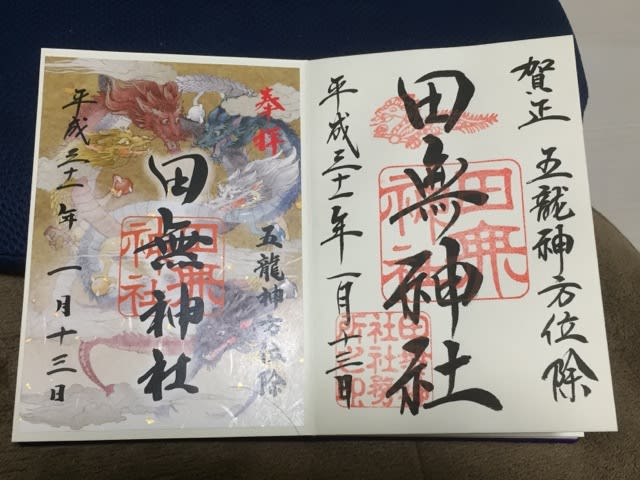 賀正 五龍神方位除
田無神社
平成三十一年一月十三日
田無神社
田無神社社務所之印
奉拝
五龍神方位除
田無神社
平成三十一年 一月十三日
田無神社